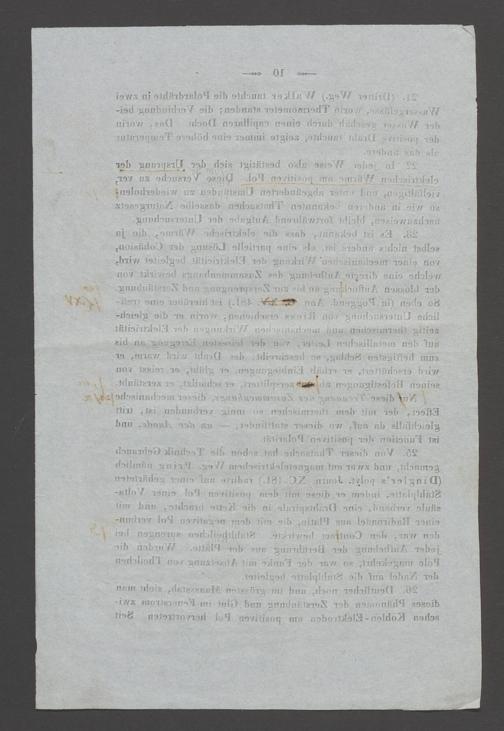 — 10 —
21. (Dritter Weg.) Walker tauchte die Polardrähte in zwei
Wassergefässe, worin Thermometer standen; die Verbindung bei-
der Wasser geschah durch einen capillaren Docht. Das, worin
der positive Draht tauchte, zeigte immer eine höhere Temperatur
als das andere.
22. In jeder Weise also bestätigt sich der Ursprung der
elektrischen Wärme am positiven Pol. Diese Versuche zu ver-
vielfältigen, und unter abgeänderten Umständen zu wiederholen,
so wie in anderen bekannten Thatsachen dasselbe Naturgesetz
nachzuweisen, bleibt fortwährend Aufgabe der Untersuchung.
23. Es ist bekannt, dass die elektrische Wärme, die ja
selbst nichts anders ist, als eine partielle Lösung der Cohäsion,
von einer mechanischen Wirkung der Elektricität begleitet wird,
welche eine directe Aufhebung des Zusammenhangs bewirkt von
der blossen Auflockerung an bis zur Zersprengung und Zerstäubung.
So eben (in Poggend. Ann. 481.) ist hierüber eine treff-
liche Untersuchung von Riess erschienen, worin er die gleich-
zeitig thermischen und mechanischen Wirkungen der Elektricität
auf den metallischen Leiter, von der leisesten Erregung an bis
zum heftigsten Schlag, so beschreibt: der Draht wird warm, er
wird erschüttert, er erhält Einbiegungen, er glüht, er reisst von
seinen Befestigungen ab, zersplittert, er schmilzt, er zerstäubt.
Nur diese Trennung des Zusammenhangs, dieser mechanische
Effect, der mit dem thermischen so innig verbunden ist, tritt
gleichfalls da auf, wo dieser stattfindet, — an der Anode, und
ist Function der positiven Polarität.
25. Von dieser Thatsache hat schon die Technik Gebrauch
gemacht, und zwar auf magnetelektrischem Weg. Pring nämlich
(Dingler's polyt. Journ. XC. 181.) radirte auf einer gehärteten
Stahlplatte, indem er diese mit dem positiven Pol einer Volta-
säule verband, eine Drahtspirale in die Kette brachte, und mit
einer Radirnadel aus Platin, die mit dem negativen Pol verbun-
den war, den Contact bewirkte. Stahltheilchen sprengen bei
jeder Aufhebung der Berührung aus der Platte. Wurden die
Pole umgekehrt, so war der Funke mit Absetzung von Theilchen
der Nadel auf die Stahlplatte begleitet.
26. Deutlicher noch, und im grössten Maassstab, sieht man
dieses Phänomen der Zerstäubung und Glut im Feuerstrom zwi-
schen Kohlen-Elektroden am positiven Pol hervortreten. Seit